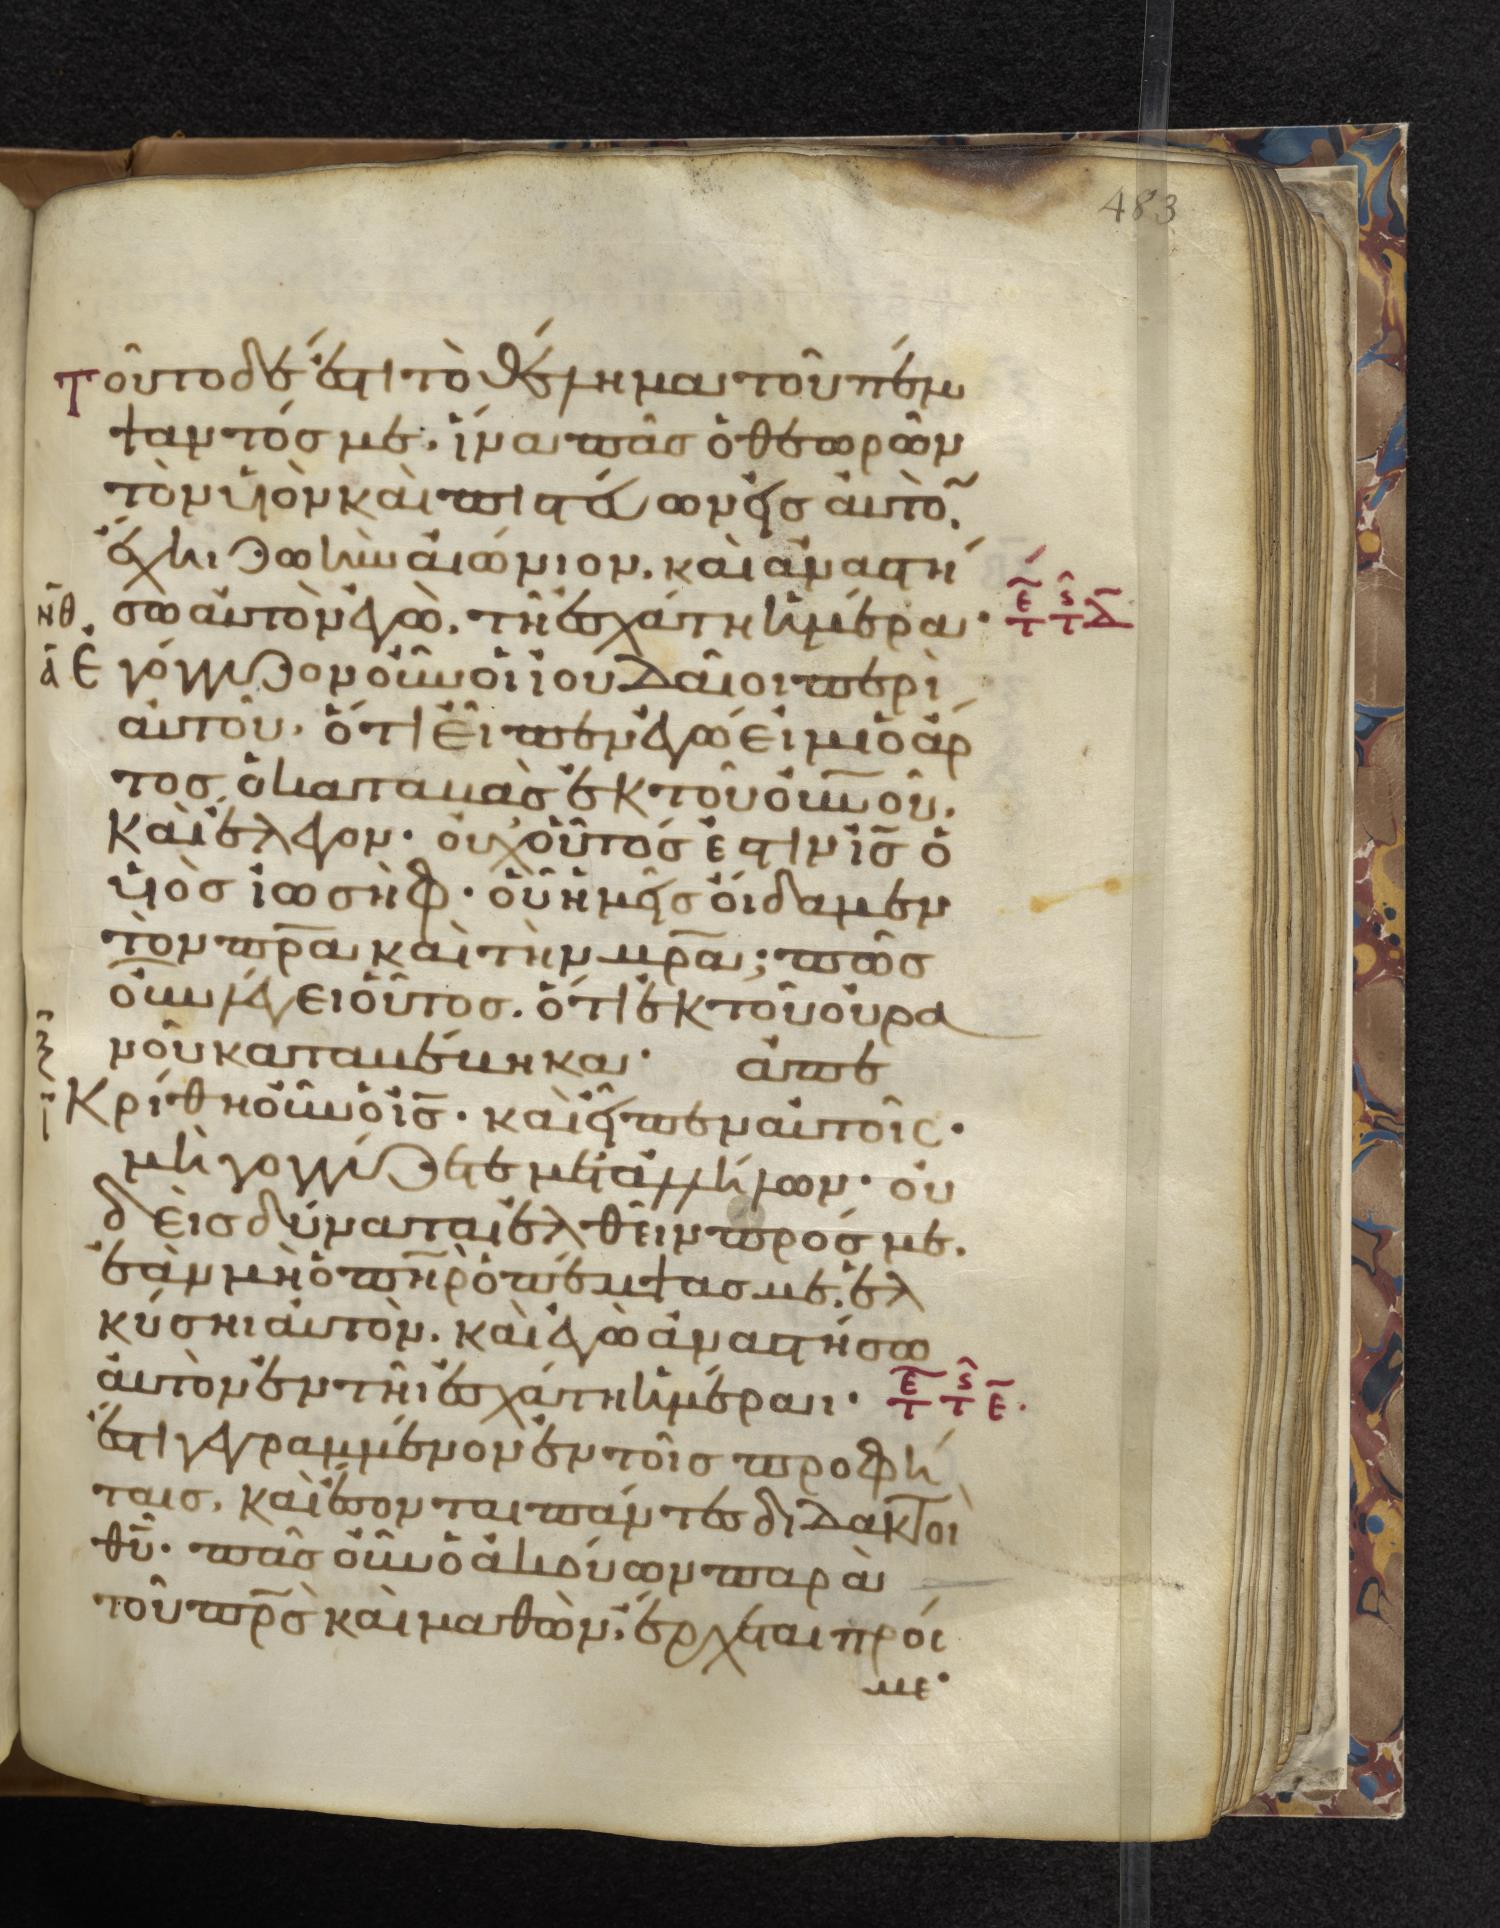 483
Τοῦτο δέ ἐστι τὸ θέλημα τοῦ πέμ
ψαντός με. ἵνα πᾶς ὁ θεωρῶν
τὸν υἱὸν καὶ πιστεύων εἰς αὐτὸ̃.
ἔχῃ ζωὴν αἰώνιον. καὶ ἀναστή
σω αὐτὸν ἐγὼ. τῇ ἐσχάτη ἡμέρα·
Ἐγόγγυζον οὖν οἱ ἰουδαῖοι περὶ
αὐτοῦ. ὅτι εἶπεν ἐγώ εἰμι ὁ ἄρ
τος ὁ καταβὰς ἐκ τοῦ οὐ̅νοῦ.
Καὶ ἔλεγον· οὐχ οὗτός ἐστιν ἰ̅ς̅ ὁ
υἱὸς ἰωσὴφ· οὗ ἡμεῖς οἴδαμεν
τὸν π̅ρ̅α̅ καὶ τὴν μ̅ρ̅α̅; πῶς
οὖν λέγει οὗτος. ὅτι ἐκ τοῦ οὐρα
νοῦ καταβέβηκα· ἀπε
Κρίθη οὖν ὁ ἰ̅ς̅. καὶ εἶπεν αὐτοῖς·
μὴ γογγύζετε μετ ἀλλήλων· οὐ
δεὶς δύναται ἐλθεῖν πρός με.
ἐὰν μὴ ὁ π̅η̅ρ̅ ὁ πέμψας με. ἑλ
κύσηι αὐτὸν. καὶ ἐγὼ ἀναστήσω
αὐτὸν ἐν τῆι ἐσχάτη ἡμέραι·
ἔστι γεγραμμένον ἐν τοῖς προφή
ταις. καὶ ἔσονται πάντες διδακτοὶ
θ̅υ̅. πᾶς οὖν ὁ ἀκούων παρὰ
τοῦ π̅ρ̅ς̅ καὶ μαθὼν. ἔρχεται πρός
με·